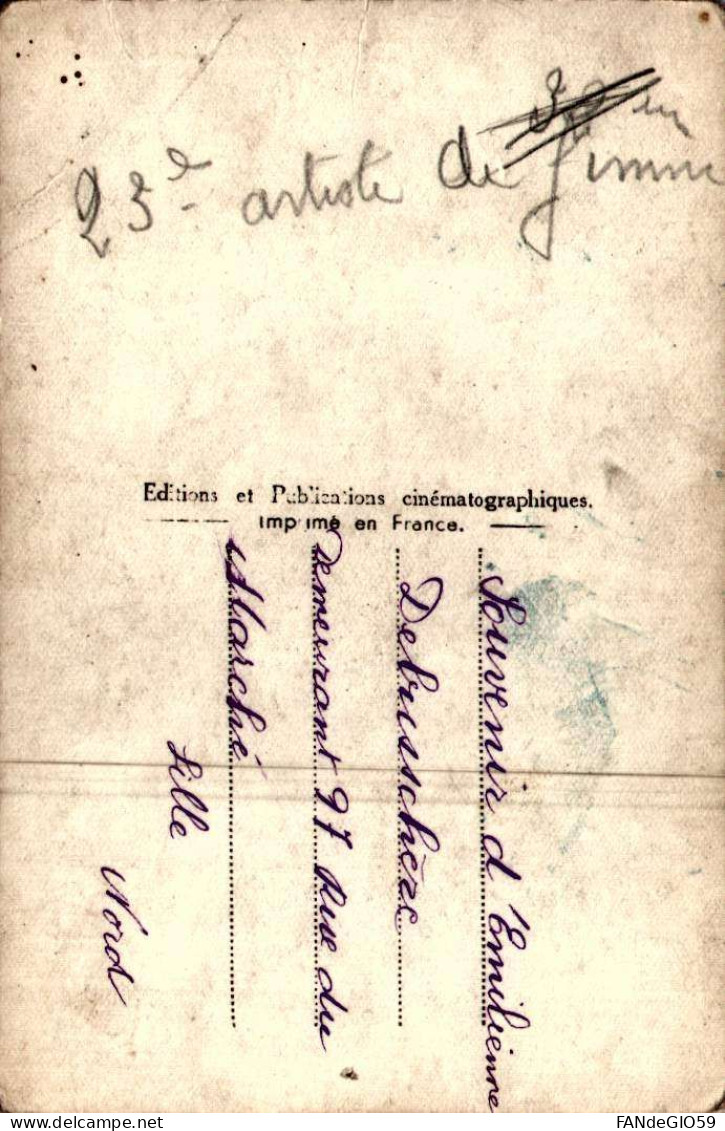 23e artiste de
Editions et Publications cinématographiques.
Imprimé en France.
Souvenir d'Emilienne
Debusschère
Demeurant 97 Rue du
Marché
Lille
Nord
FANdeGIO59